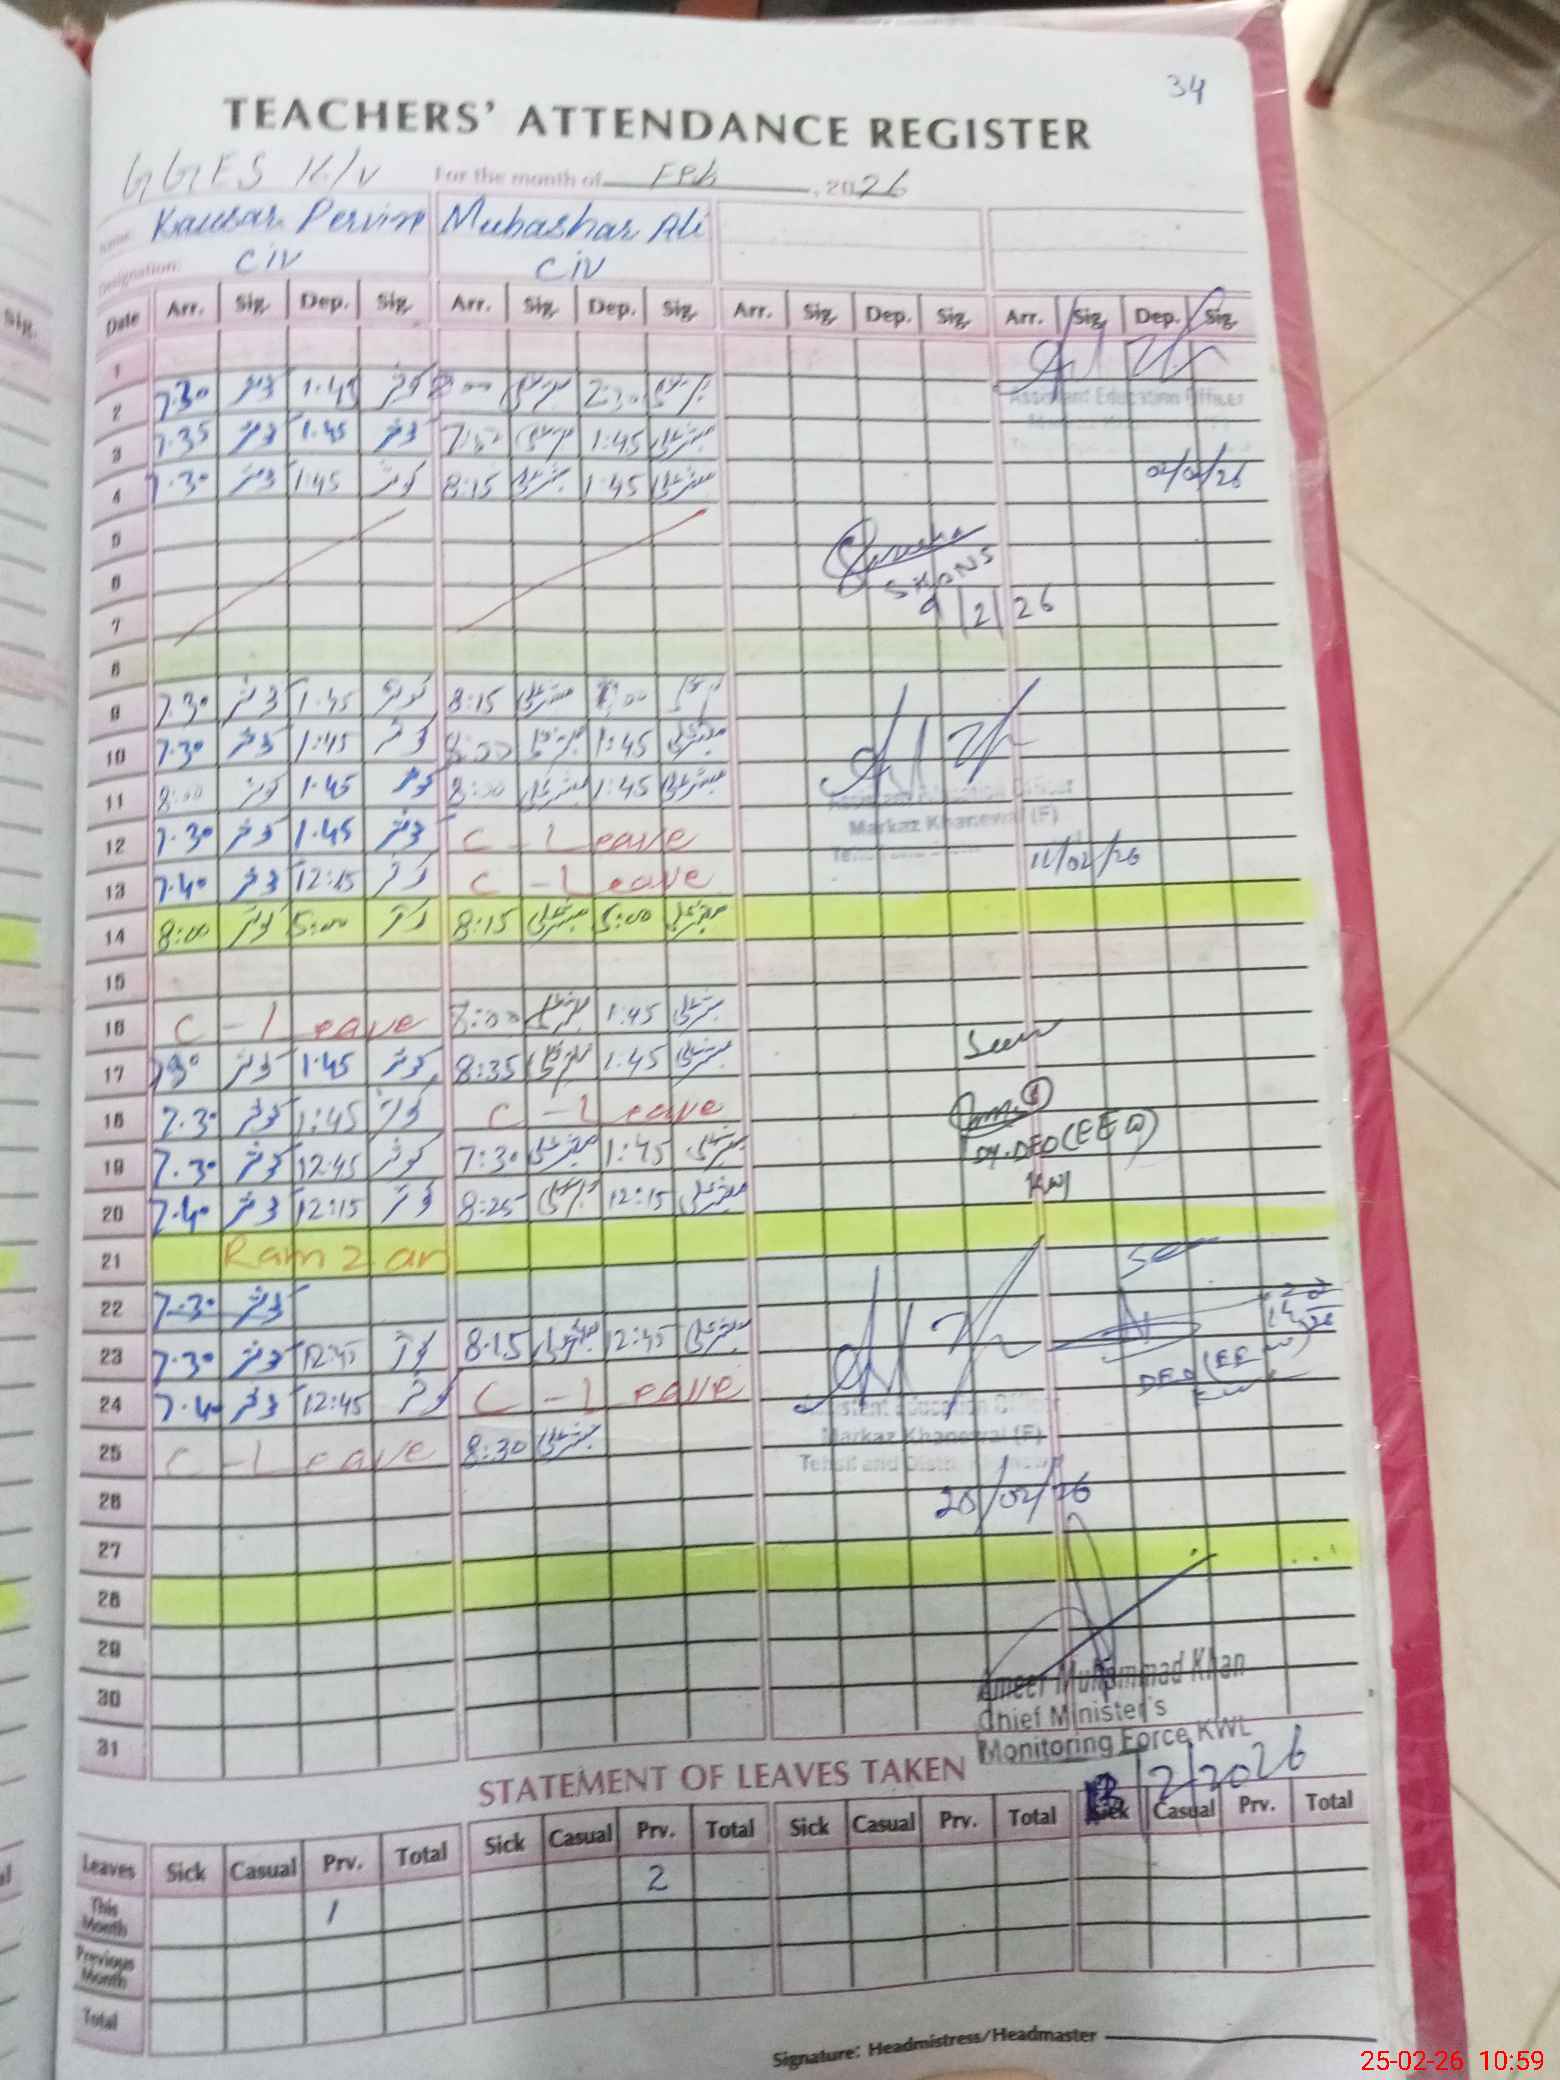 34
TEACHERS' ATTENDANCE REGISTER
GGES K/V For the month of Feb, 2026
Name: Kausar Pervin Mubashar Ali
Designation: CIV CIV
Date Arr. Sig. Dep. Sig. Arr. Sig. Dep. Sig. Arr. Sig. Dep. Sig. Arr. Sig. Dep. Sig.
1
2 7.30 کوثر 1.45 کوثر 8:00 مبشر علی 2:30 مبشر علی
Assistant Education Officer
3 7.35 کوثر 1.45 کوثر مبشر علی 1:45 مبشر علی
4 7.30 کوثر 1:45 کوثر 8:15 مبشر علی 1:45 مبشر علی
5
6
7
9/2/26
8
9 7.30 کوثر 1.45 کوثر 8:15 مبشر علی
10 7.30 کوثر 1:45 کوثر 8:00 مبشر علی 1:45 مبشر علی
11 8:00 کوثر 1.45 کوثر 8:00 مبشر علی 1:45 مبشر علی
Assistant Education Officer
Markaz Khanewal (F)
12 7.30 کوثر 1.45 کوثر C - Leave
13 7.40 کوثر 12:15 کوثر C - Leave
11/02/26
14 8:00 کوثر 5:00 کوثر 8:15 مبشر علی 5:00 مبشر علی
15
16 C - Leave مبشر علی 1:45 مبشر علی
Seen
17 کوثر 1.45 کوثر 8:35 مبشر علی 1:45 مبشر علی
18 7.30 کوثر 1:45 کوثر C - Leave
19 7.30 کوثر 12:45 کوثر 7:30 مبشر علی 1:45 مبشر علی
DY.DEO (EE W)
20 7.40 کوثر 12:15 کوثر 8:25 مبشر علی 12:15 مبشر علی
21 Ramzan
22 7.30 کوثر
23 7.30 کوثر 12:45 کوثر 8:15 مبشر علی 12:45 مبشر علی
DEO (EE W)
24 7.40 کوثر 12:45 کوثر C - Leave
Assistant Education Officer
Markaz Khanewal (F)
25 C - Leave 8:30 مبشر علی
Tehsil and Distt. Khanewal
26
27
28
29
30
31
Ameer Muhammad Khan
Chief Minister's
Monitoring Force KWL
/2/2026
STATEMENT OF LEAVES TAKEN
Leaves Sick Casual Prv. Total Sick Casual Prv. Total Sick Casual Prv. Total Sick Casual Prv. Total
This Month 1 2
Previous Month
Total
Signature: Headmistress/Headmaster
25-02-26 10:59
Sig.